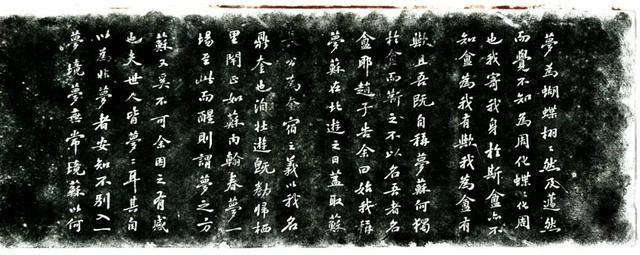 夢為蝴蝶栩々然及蘧然
而覺不知為周化蝶々化周
也我寄我身於斯盦亦不
知盦為我有歟我為盦有
歟且吾既自稱夢蘇何獨
於盦而靳之不以名吾者名
盦耶趙子安余曰始我稱
夢蘇在北遊之日蓋取蘇
長公為奎宿之義以我名
鼎奎也洎壯遊既勌歸栖
里閈正如蘇內翰春夢一
場至此而醒則謂夢之方
蘇又奚不可余因之有感
也夫世人皆夢々耳其自
以為非夢者安知不別入一
夢境夢無常境蘇以何